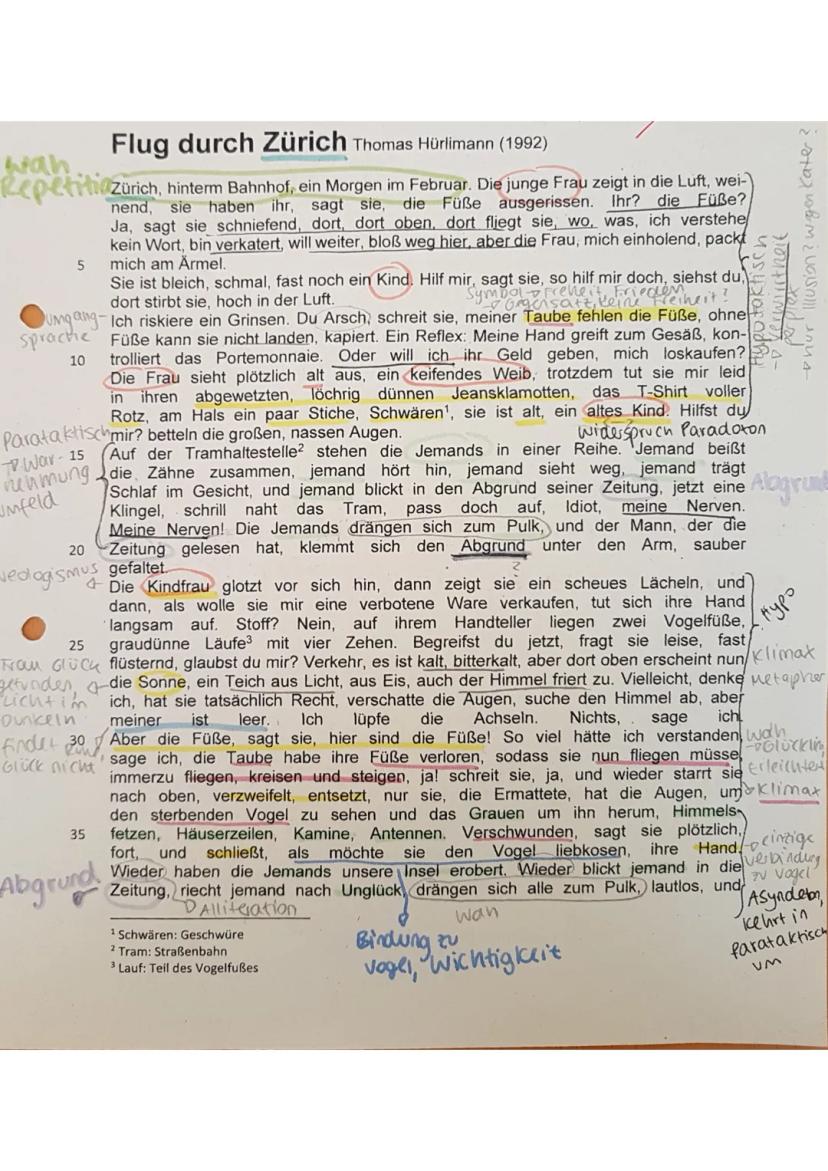 Flug durch Zürich Thomas Hürlimann (1992)
wah
Repetitio
Zürich, hinterm Bahnhof, ein Morgen im Februar. Die junge Frau zeigt in die Luft, wei-
nend, sie haben ihr, sagt sie, die Füße ausgerissen. Ihr? die Füße?
Ja, sagt sie schniefend, dort, dort oben, dort fliegt sie, wo, was, ich verstehe
kein Wort, bin verkatert, will weiter, bloß weg hier, aber die Frau, mich einholend, packt
5 mich am Ärmel.
Sie ist bleich, schmal, fast noch ein Kind. Hilf mir, sagt sie, so hilf mir doch, siehst du,
Symbol → Freiheit, Frieden
dort stirbt sie, hoch in der Luft.
→ Gegensatz, keine Freiheit?
Umgang-
sprache
Ich riskiere ein Grinsen. Du Arsch, schreit sie, meiner Taube fehlen die Füße, ohne
Füße kann sie nicht landen, kapiert. Ein Reflex: Meine Hand greift zum Gesäß, kon-
10 trolliert das Portemonnaie. Oder will ich ihr Geld geben, mich loskaufen?
Die Frau sieht plötzlich alt aus, ein keifendes Weib, trotzdem tut sie mir leid
in ihren abgewetzten, löchrig dünnen Jeansklamotten, das T-Shirt voller
Rotz, am Hals ein paar Stiche, Schwären¹, sie ist alt, ein altes Kind. Hilfst du
mir? betteln die großen, nassen Augen.
Widerspruch Paradoxon
hypotaktisch
→ Verwirrtheit
perplex
→ nur Illusion? wegen Kater?
Parataktisch
→ War-
nehmung
Umfeld
15 Auf der Tramhaltestelle² stehen die Jemands in einer Reihe. Jemand beißt
die Zähne zusammen, jemand hört hin, jemand sieht weg, jemand trägt
Schlaf im Gesicht, und jemand blickt in den Abgrund seiner Zeitung, jetzt eine
Abgrund
Klingel, schrill naht das Tram, pass doch auf, Idiot, meine Nerven.
Meine Nerven! Die Jemands drängen sich zum Pulk, und der Mann, der die
20 Zeitung gelesen hat, klemmt sich den Abgrund unter den Arm, sauber
gefaltet.
?
Neologismus
Die Kindfrau glotzt vor sich hin, dann zeigt sie ein scheues Lächeln, und
dann, als wolle sie mir eine verbotene Ware verkaufen, tut sich ihre Hand
langsam auf. Stoff? Nein, auf ihrem Handteller liegen zwei Vogelfüße,
Hypo
25 graudünne Läufe³ mit vier Zehen. Begreifst du jetzt, fragt sie leise, fast
flüsternd, glaubst du mir? Verkehr, es ist kalt, bitterkalt, aber dort oben erscheint nun
Klimax
die Sonne, ein Teich aus Licht, aus Eis, auch der Himmel friert zu. Vielleicht, denke
Metapher
ich, hat sie tatsächlich Recht, verschatte die Augen, suche den Himmel ab, aber
meiner ist leer. Ich lüpfe die Achseln. Nichts, sage ich.
Frau Glück
gefunden,
Licht im
Dunkeln
findet
Glück nicht
30 Aber die Füße, sagt sie, hier sind die Füße! So viel hätte ich verstanden,
wah
sage ich, die Taube habe ihre Füße verloren, sodass sie nun fliegen müsse,
→ Glücklich,
Erleichtert
immerzu fliegen, kreisen und steigen, ja! schreit sie, ja, und wieder starrt sie
nach oben, verzweifelt, entsetzt, nur sie, die Ermattete, hat die Augen, um
→ Klimax
den sterbenden Vogel zu sehen und das Grauen um ihn herum, Himmels-
35 fetzen, Häuserzeilen, Kamine, Antennen. Verschwunden, sagt sie plötzlich,
fort, und schließt, als möchte sie den Vogel liebkosen, ihre Hand.
→ einzige
Verbindung
zu Vogel
Wieder haben die Jemands unsere Insel erobert. Wieder blickt jemand in die
Abgrund
Zeitung, riecht jemand nach Unglück, drängen sich alle zum Pulk, lautlos, und
Asyndeton,
kehrt in
parataktisch
um
Alliteration
wah
Bindung zu
Vogel, Wichtigkeit
¹ Schwären: Geschwüre
² Tram: Straßenbahn
³ Lauf: Teil des Vogelfußes